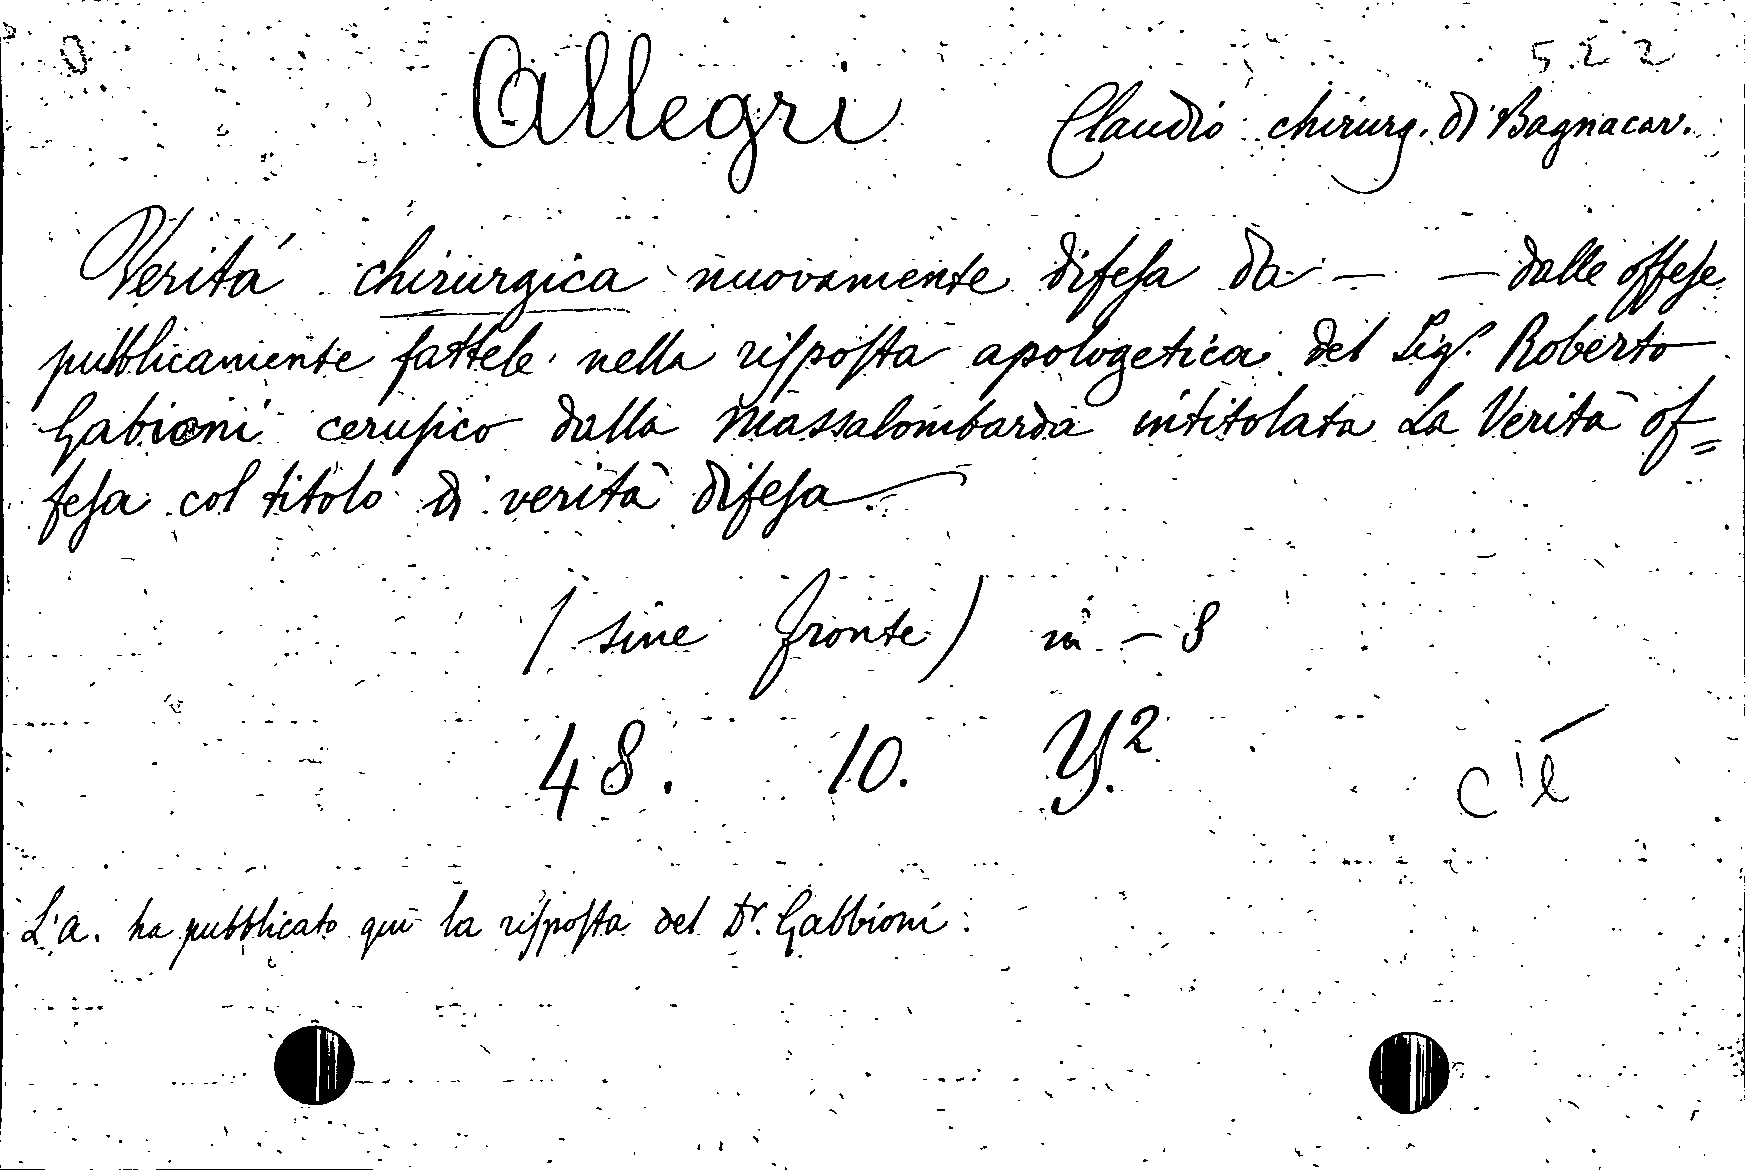 522
Allegri Claudio chirurg. di Bagnacav.
Verità chirurgica nuovamente difesa da — — dalle offese
pubblicamente fattele nella risposta apologetica del Sigr. Roberto
Gabioni cerusico dalla Massalombarda intitolata La Verità of=
fesa col titolo di verità difesa
(sine fronte) in - 8
48. 10. Y.2
c'è
L'a. ha pubblicato qui la risposta del Dr. Gabbioni.